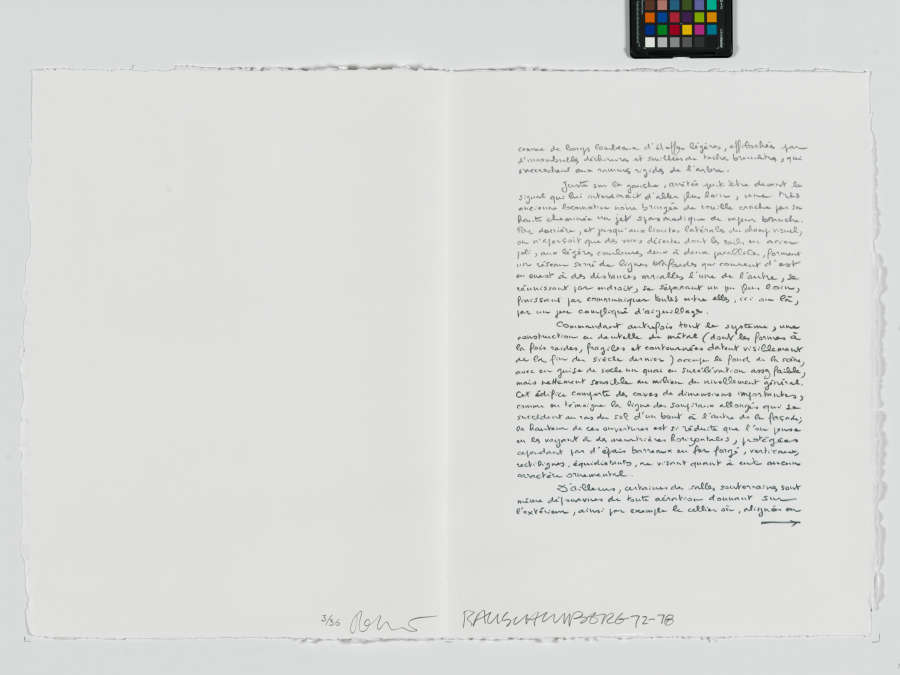 comme de longs lambeaux d'étoffes légères, effilochés par
d'innombrables déchirures et souillés de taches brunâtres, qui
s'accrochent aux rameaux rigides de l'arbre.
Juste sur la gauche, arrêtée peut-être devant le
signal qui lui interdirait d'aller plus loin, une très
ancienne locomotive noire bringée de rouille crache par sa
haute cheminée un jet spasmodique de vapeur blanche.
Par derrière, et jusqu'aux limites latérales du champ visuel,
on n'aperçoit que des voies désertes dont les rails en
aux légères courbures deux à deux parallèles, forment
un réseau serré de lignes qui courent d'est
en ouest à des distances variables l'une de l'autre, se
réunissant par endroit, se séparant un peu plus loin,
finissant par communiquer toutes entre elles, ici ou là,
par un jeu compliqué d'aiguillage.
Commandant autrefois tout le système, une
construction en dentelle de métal (dont les formes à
la fois raides, fragiles et contournées datent visiblement
de la fin du siècle dernier) occupe le fond de la scène,
avec en guise de socle un quai en surélévation assez faible,
mais nettement sensible au milieu du nivellement général.
Cet édifice comporte des caves de dimensions importantes,
comme en témoigne la ligne des soupiraux allongés qui se
succèdent au ras du sol d'un bout à l'autre de la façade;
la hauteur de ces ouvertures est si réduite que l'on pense
en les voyant à des meurtrières horizontales, protégées
cependant par d'épais barreaux en fer forgé, verticaux,
rectilignes, équidistants, ne visant quant à eux aucun
caractère ornemental.
D'ailleurs, certaines des salles souterraines sont
même dépourvues de toute aération donnant sur
l'extérieur, ainsi par exemple le cellier où, alignées en
3/36 RAUSCHENBERG 72-78